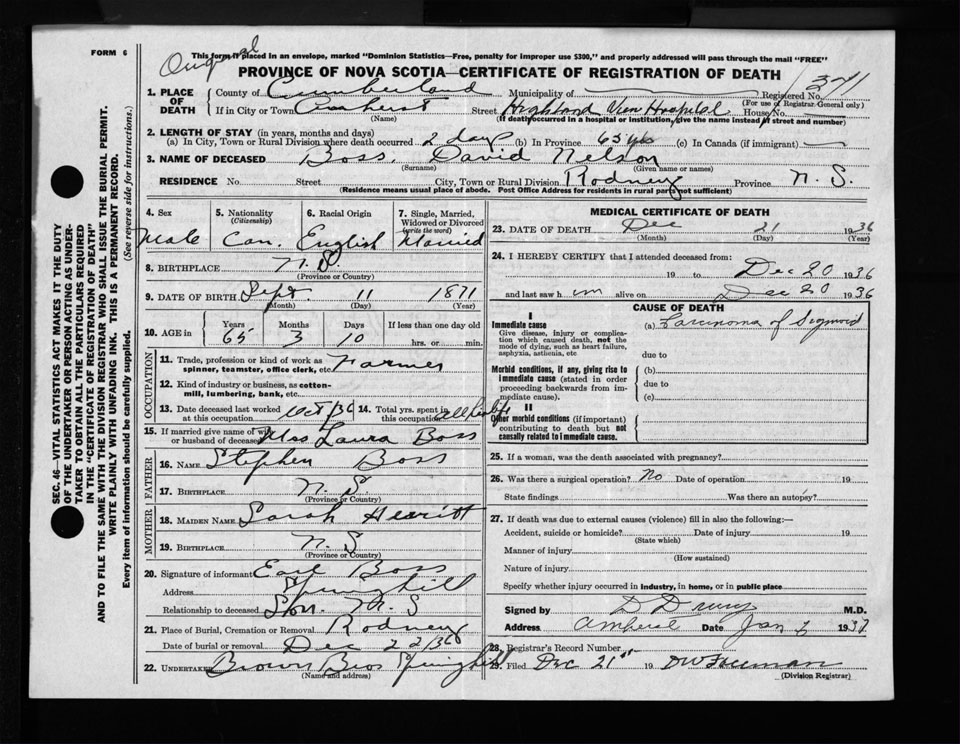 FORM 6
Original
This form if placed in an envelope, marked "Dominion Statistics—Free, penalty for improper use $300," and properly addressed will pass through the mail "FREE"
PROVINCE OF NOVA SCOTIA—CERTIFICATE OF REGISTRATION OF DEATH
Registered No. 371
(For use of Registrar General only)
1. PLACE OF DEATH
County of Cumberland Municipality of
If in City or Town Amherst Street Highland View Hospital House No.
(Name) (If death occurred in a hospital or institution, give the name instead of street and number)
2. LENGTH OF STAY (in years, months and days)
(a) In City, Town or Rural Division where death occurred 2 days (b) In Province 65 yrs (c) In Canada (if immigrant) —
3. NAME OF DECEASED Boss, David Nelson
(Surname) (Given name or names)
RESIDENCE No. Street City, Town or Rural Division Rodney Province N. S.
(Residence means usual place of abode. Post Office Address for residents in rural parts not sufficient)
4. Sex Male
5. Nationality (Citizenship) Can.
6. Racial Origin English
7. Single, Married, Widowed or Divorced (write the word) Married
8. BIRTHPLACE N. S.
(Province or Country)
9. DATE OF BIRTH Sept. 11 1871
(Month) (Day) (Year)
10. AGE in Years 65 Months 3 Days 10 If less than one day old hrs. or min.
OCCUPATION
11. Trade, profession or kind of work as spinner, teamster, office clerk, etc. Farmer
12. Kind of industry or business, as cotton-mill, lumbering, bank, etc.
13. Date deceased last worked at this occupation Oct/36 14. Total yrs. spent in this occupation all his life
15. If married give name of wife or husband of deceased Mrs Laura Boss
FATHER
16. NAME Stephen Boss
17. BIRTHPLACE N. S.
(Province or Country)
MOTHER
18. MAIDEN NAME Sarah Hewitt
19. BIRTHPLACE N. S
(Province or Country)
20. Signature of informant Earl Boss
Address Springhill
Relationship to deceased Son. N. S
21. Place of Burial, Cremation or Removal Rodney
Date of burial or removal Dec 22/36
22. UNDERTAKER Brown Bros Springhill
(Name and address)
MEDICAL CERTIFICATE OF DEATH
23. DATE OF DEATH Dec 21 1936
(Month) (Day) (Year)
24. I HEREBY CERTIFY that I attended deceased from:
19 to Dec 20 1936
and last saw him alive on Dec 20 1936
CAUSE OF DEATH
I
Immediate cause (a) Carcinoma of Sigmoid
Give disease, injury or complication which caused death, not the mode of dying, such as heart failure, asphyxia, asthenia, etc
due to
Morbid conditions, if any, giving rise to immediate cause (stated in order proceeding backwards from immediate cause). (b)
due to
(c)
II
Other morbid conditions (if important) contributing to death but not causally related to immediate cause.
25. If a woman, was the death associated with pregnancy?
26. Was there a surgical operation? No Date of operation 19
State findings Was there an autopsy?
27. If death was due to external causes (violence) fill in also the following:—
Accident, suicide or homicide? Date of injury 19
(State which)
Manner of injury
(How sustained)
Nature of injury
Specify whether injury occurred in industry, in home, or in public place
Signed by D Drury M.D.
Address Amherst Date Jan 6 1937
28. Registrar's Record Number
29. Filed Dec 21st 19 DW Freeman
(Division Registrar)
SEC. 46—VITAL STATISTICS ACT MAKES IT THE DUTY
OF THE UNDERTAKER OR PERSON ACTING AS UNDER-
TAKER TO OBTAIN ALL THE PARTICULARS REQUIRED
IN THE "CERTIFICATE OF REGISTRATION OF DEATH"
AND TO FILE THE SAME WITH THE DIVISION REGISTRAR WHO SHALL ISSUE THE BURIAL PERMIT.
WRITE PLAINLY WITH UNFADING INK. THIS IS A PERMANENT RECORD.
Every item of information should be carefully supplied. (See reverse side for instructions.)